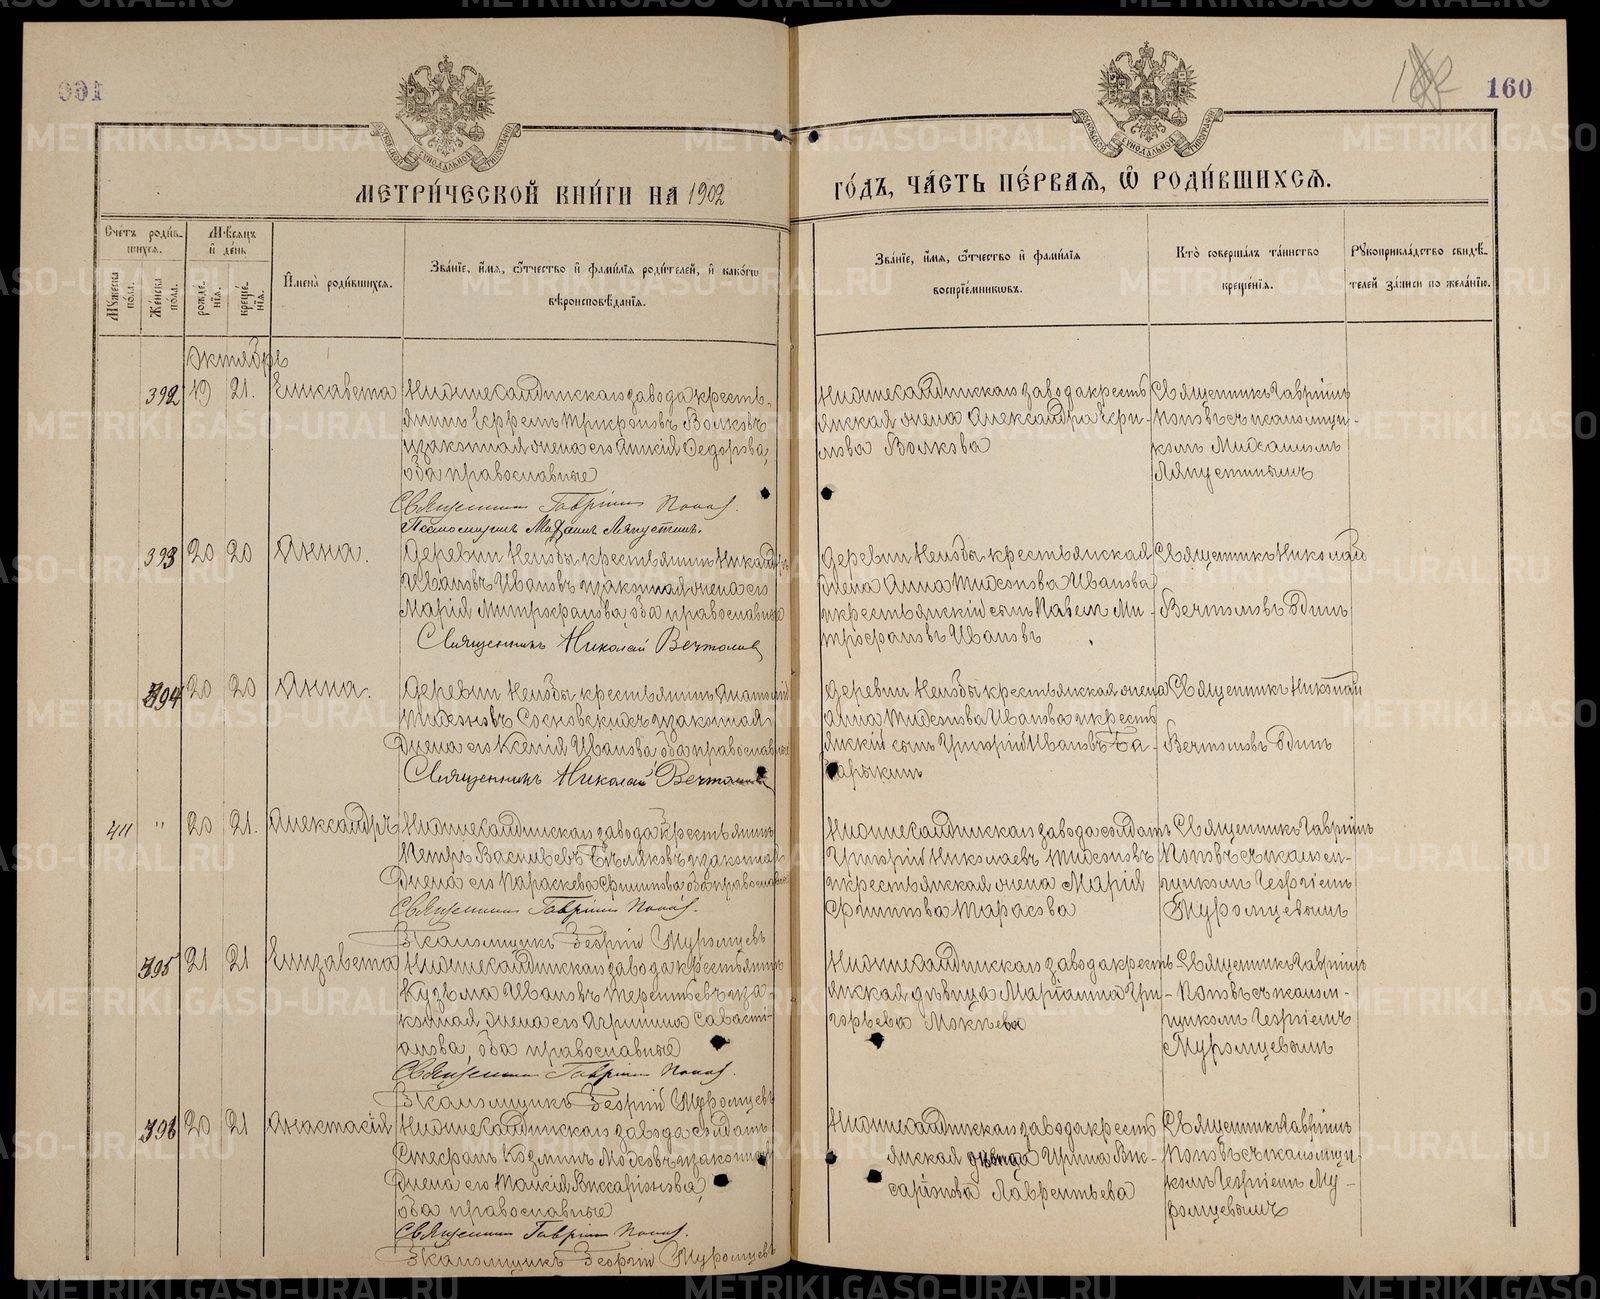 160
МЕТРИ́ЧЕСКОЙ КНИ́ГИ НА 1902
ГО́ДЪ, ЧА́СТЬ ПЕ́РВАѦ, Ѿ РОДИ́ВШИХСѦ.
Сче́тъ роди́в-
шихсѧ.
Му́жеска пола.
Же́нска пола.
Мѣ́сѧцъ и де́нь
рожде́нїѧ.
креще́нїѧ.
Имена̀ роди́вшихсѧ.
Зва́нїе, и́мѧ, ѻ҆́тчество и фами́лїѧ роди́телей, и како́гѡ
вѣроисповѣ́данїѧ.
Зва́нїе, и́мѧ, ѻ҆́тчество и фами́лїѧ
воспрїе́мникѡвъ.
Кто̀ соверша́лъ та́инство
креще́нїѧ.
Рꙋкоприкла́дство свидѣ́-
телей за́писи по жела́нїю.
Октябрь
392 19 21. Елисавета
Нижнесалдинскаго завода кресть-
янинъ Трифоновъ Волковъ
и законная жена его Ѳедорова,
оба православные
Священникъ Гавріилъ Поповъ.
Псаломщикъ Михаилъ Ляпустинъ.
Нижнесалдинскаго завода кресть
янская жена Александра
Волкова
Священникъ Гавріилъ
Поповъ съ псаломщи-
комъ Михаиломъ
Ляпустинымъ
393 20 20 Анна.
Деревни Нелобы крестьянинъ
Ивановъ Ивановъ и законная жена его
Марія Митрофанова, оба православные
Священникъ Николай
Деревни Нелобы крестьянская
жена Анна Тихонова Иванова
и крестьянскій сынъ Павелъ Ми-
трофановъ Ивановъ
Священникъ Николай
одинъ
394 20 20 Анна.
Деревни Нелобы крестьянинъ Анатолій
Тихоновъ Сосновскихъ и законная
жена его Ксенія Иванова, оба православные
Священникъ Николай
Деревни Нелобы крестьянская жена
Анна Тихонова Иванова и кресть
янскій сынъ Григорій Ивановъ
Священникъ Николай
одинъ
411 " 20 21. Александръ
Нижнесалдинскаго завода крестьянинъ
Петръ Васильевъ Бѣляковъ и законная
жена его Параскева Филиппова, оба православные
Священникъ Гавріилъ Поповъ.
Псаломщикъ Георгій Муромцевъ
Нижнесалдинскаго завода солдатъ
Григорій Николаевъ Тихоновъ
и крестьянская жена Марія
Филиппова Тарасова
Священникъ Гавріилъ
Поповъ съ псалом-
щикомъ Георгіемъ
Муромцевымъ
395 21 21 Елизавета
Нижнесалдинскаго завода крестьянинъ
Кузьма Ивановъ Терентьевъ и за-
конная жена его Агрипина Савасті-
анова, оба православные
Священникъ Гавріилъ Поповъ.
Псаломщикъ Георгій Муромцевъ
Нижнесалдинскаго завода кресть-
янская дѣвица Маріанна Гри-
горьева Мокѣева
Священникъ Гавріилъ
Поповъ съ псалом-
щикомъ Георгіемъ
Муромцевымъ
396 20 21 Анастасія
Нижнесалдинскаго завода солдатъ
Стефанъ Козминъ и законная
жена его Таисія Виссаріонова,
оба православные
Священникъ Гавріилъ Поповъ.
Псаломщикъ Георгій Муромцевъ
Нижнесалдинскаго завода кресть
янская дѣвица Ирина Вис-
саріонова Лаврентьева
Священникъ Гавріилъ
Поповъ съ псаломщи-
комъ Георгіемъ Му-
ромцевымъ
METRIKI.GASO-URAL.RU